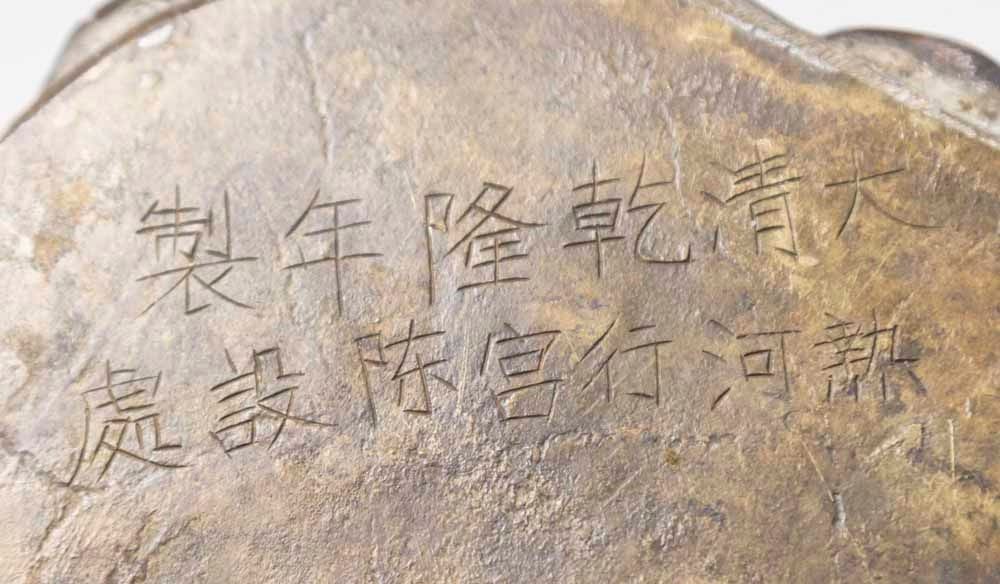 大清乾隆年製
熱河行宮陈設處